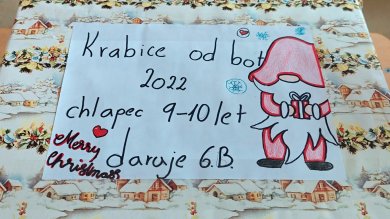 Krabice od bot
2022
chlapec 9-10 let
daruje 6.B.
Merry
Christmass